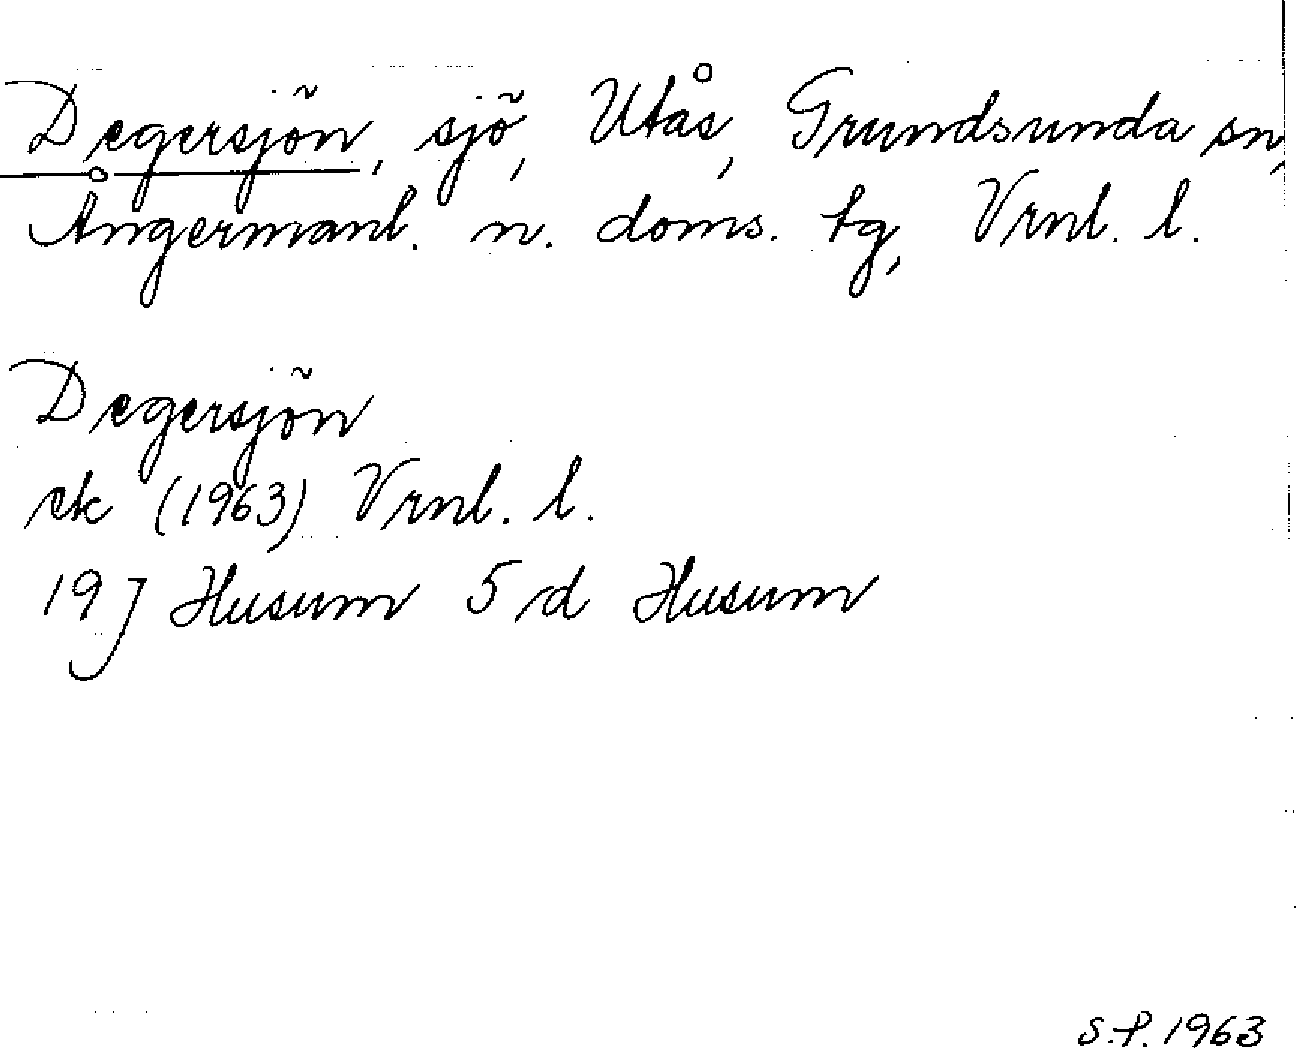 Degersjön, sjö, Utås, Grundsunda sn,
Ångermanl. n. doms. tg, Vrnl. l.
Degersjön
ek (1963) Vrnl. l.
19 J Husum 5 d Husum
S.P. 1963